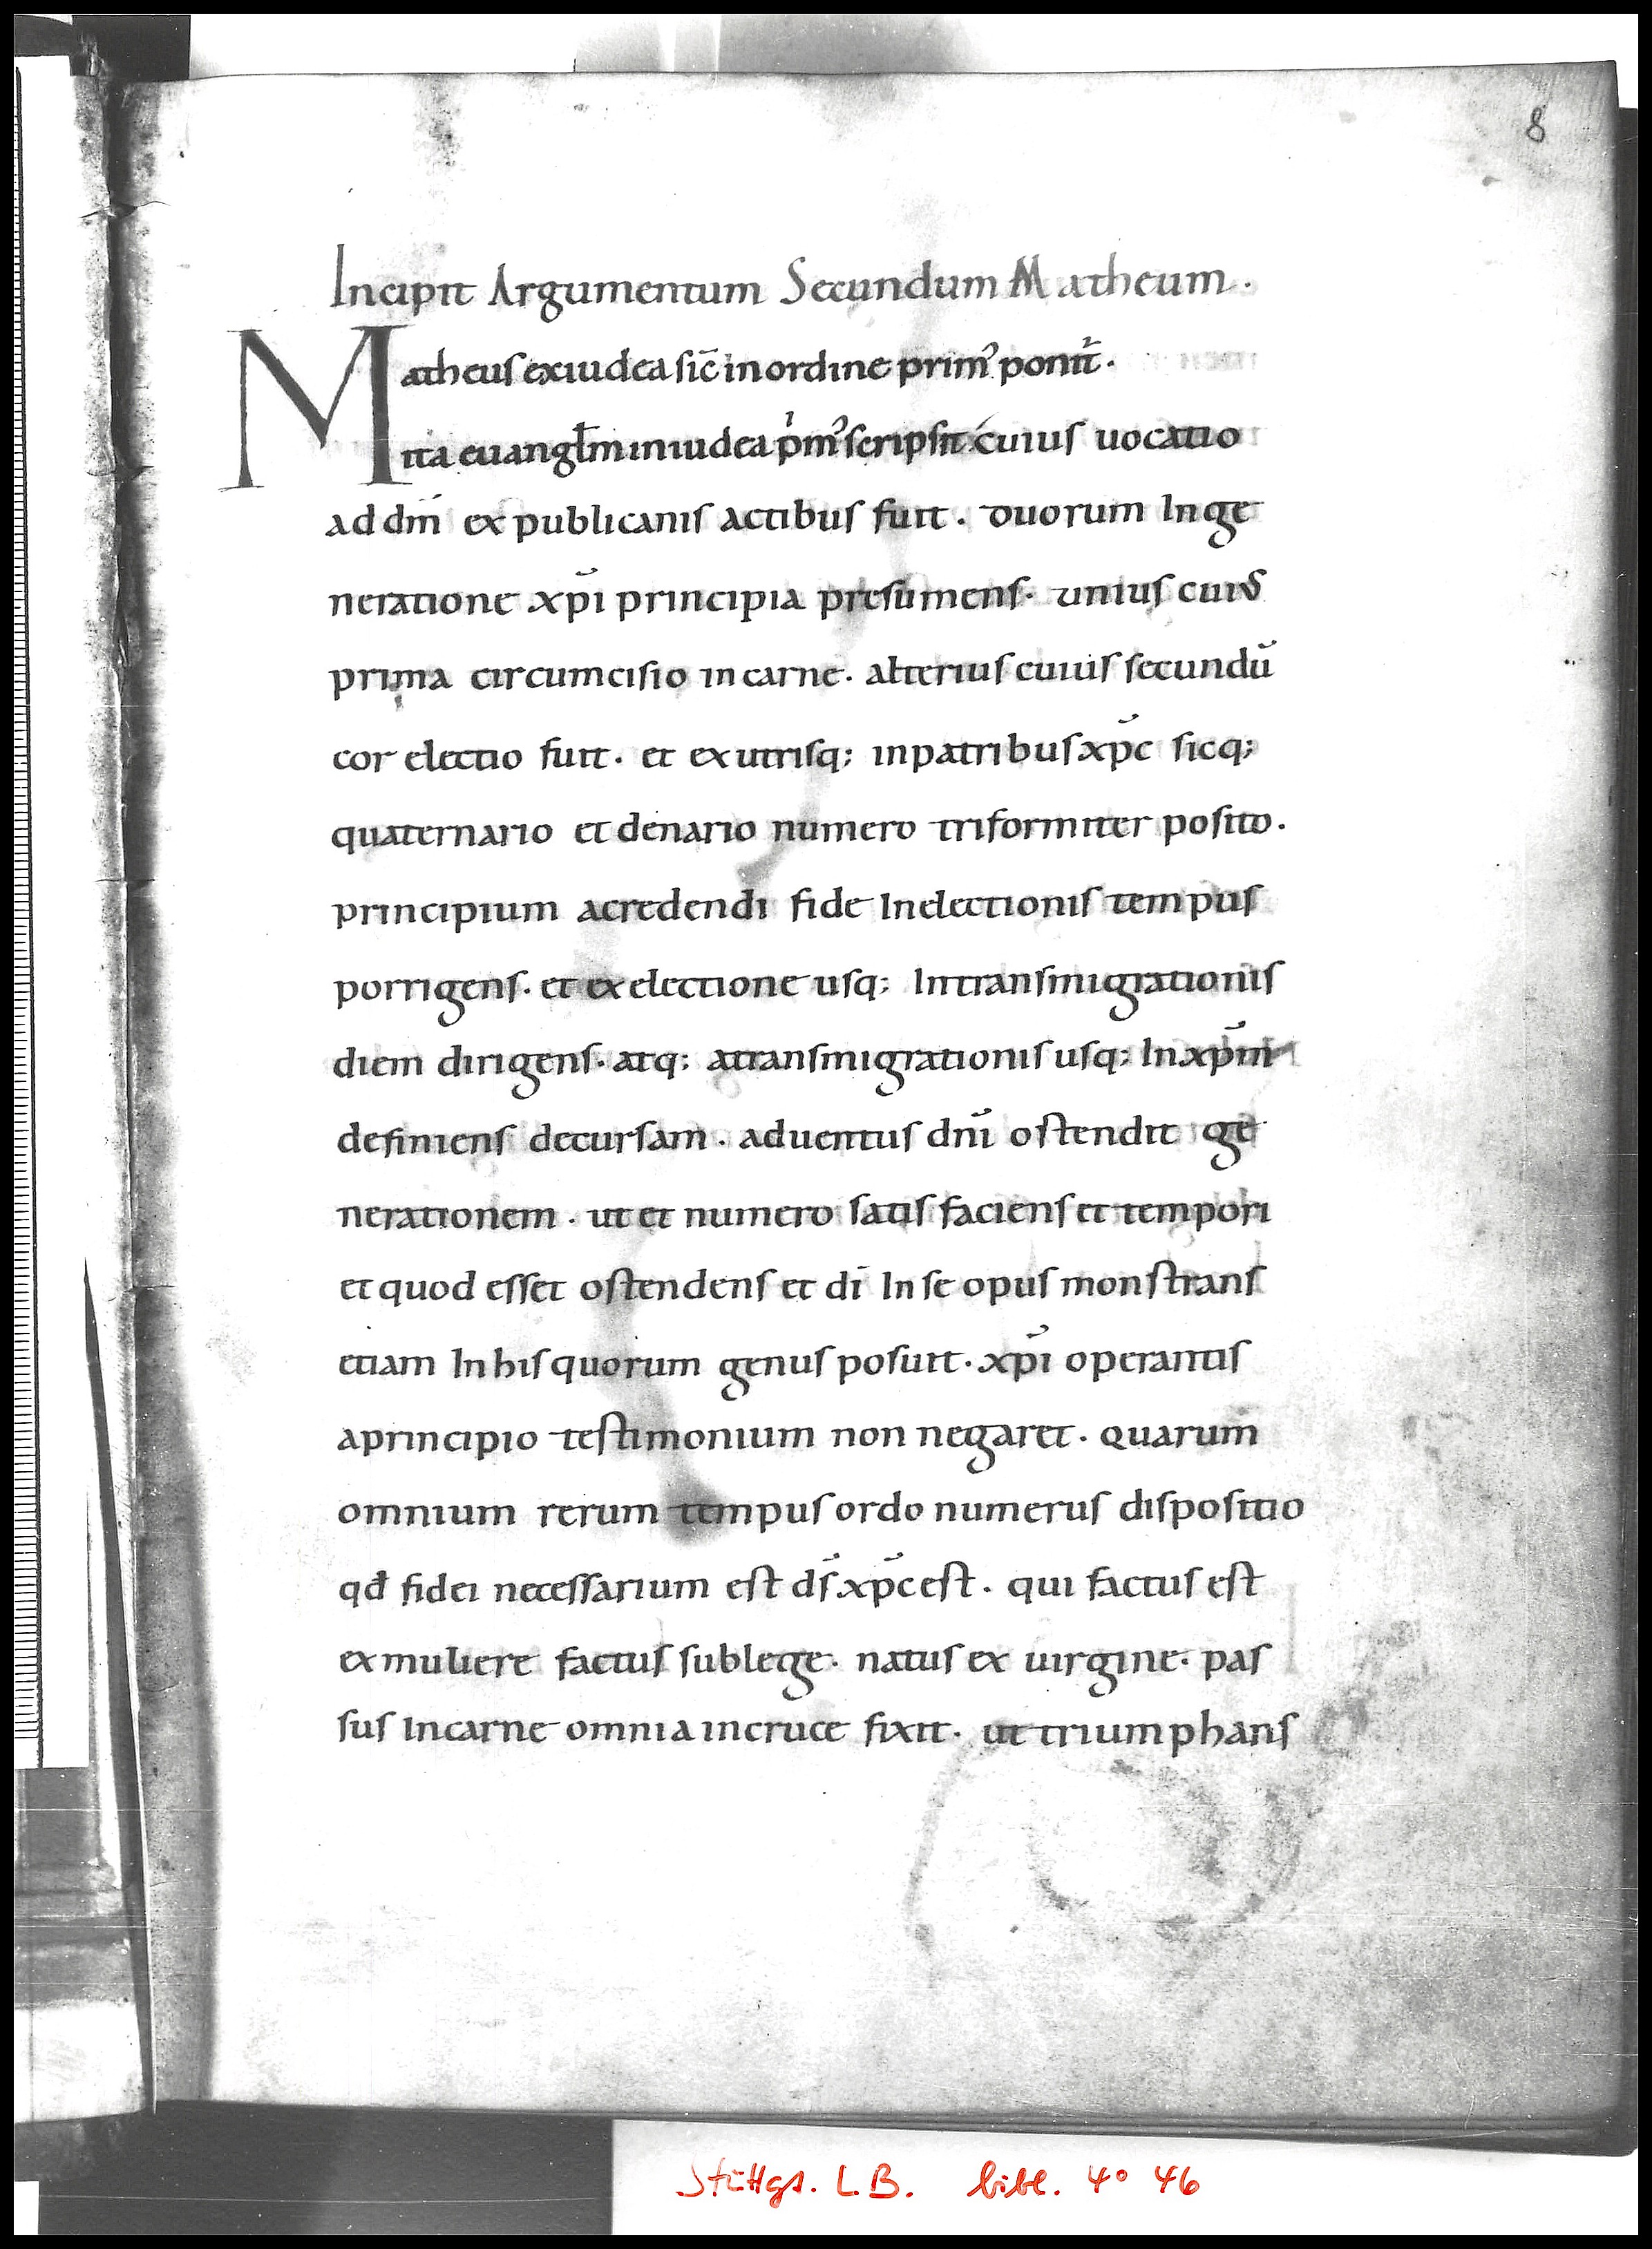 8
Incipit Argumentum Secundum Matheum.
Matheus ex iudea sic̄ in ordine prim᾿ ponit̄.
ita euangl̄m in iudea p̍m᾿ scripsit. cuius uocatio
ad dn̄m ex publicanis actibus fuit. duorum In ge
neratione xp̄i principia presumens. unius cuius
prima circumcisio in carne. alterius cuius secundū
cor electio fuit. et ex utrisq; in patribus xp̄c sicq;
quaternario et denario numero triformiter posito.
principium a credendi fide In electionis tempus
porrigens. et ex electione usq; In transmigrationis
diem dirigens. atq; a transmigrationis usq; In xp̄m
definiens decursam. aduentus dn̄i ostendit ge
nerationem. ut et numero satis faciens et tempori
et quod esset ostendens et dī In se opus monstrans
etiam In his quorum genus posuit. xp̄i operantis
a principio testimonium non negaret. quarum
omnium rerum tempus ordo numerus dispositio
qđ fidei necessarium est dс̄ xp̄c est. qui factus est
ex muliere factus sub lege. natus ex uirgine. pas
sus In carne omnia in cruce fixit. ut triumphans
Stuttgt. L.B. bibl. 4° 46